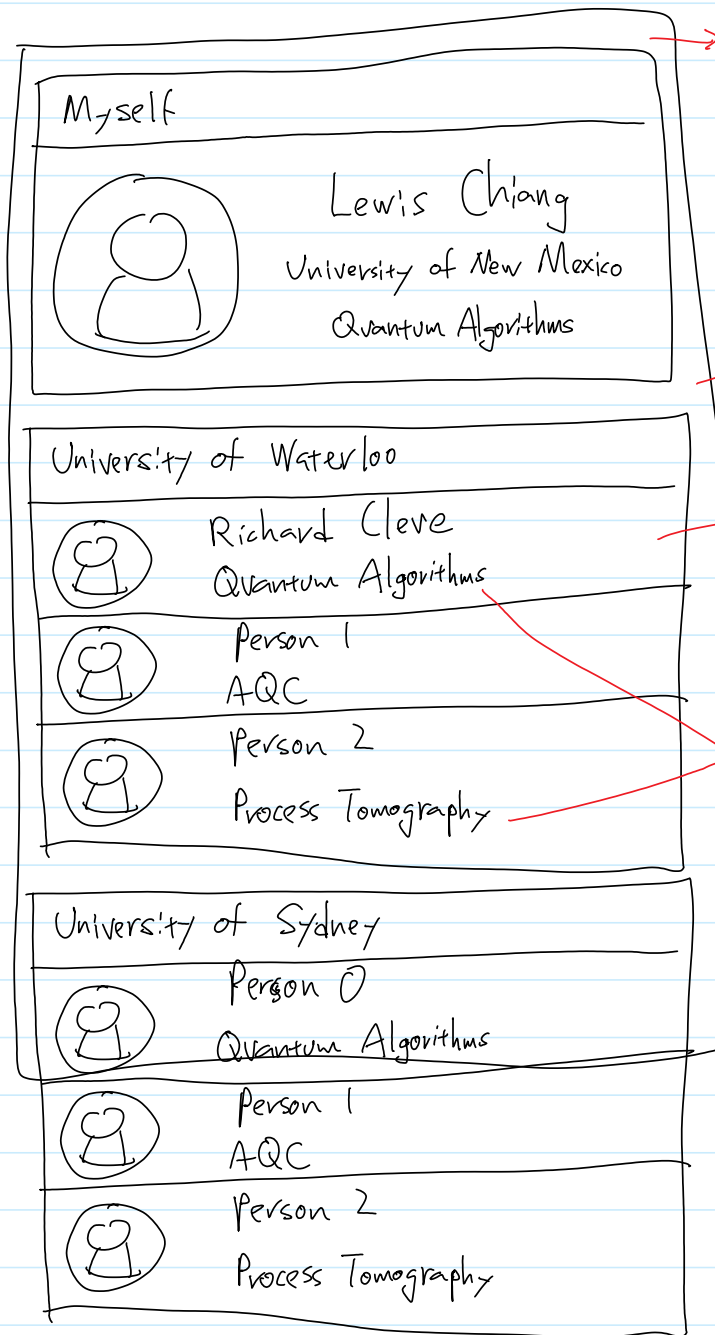 Myself
Lewis Chiang
University of New Mexico
Quantum Algorithms
University of Waterloo
Richard Cleve
Quantum Algorithms
Person 1
AQC
Person 2
Process Tomography
University of Sydney
Person 0
Quantum Algorithms
Person 1
AQC
Person 2
Process Tomography